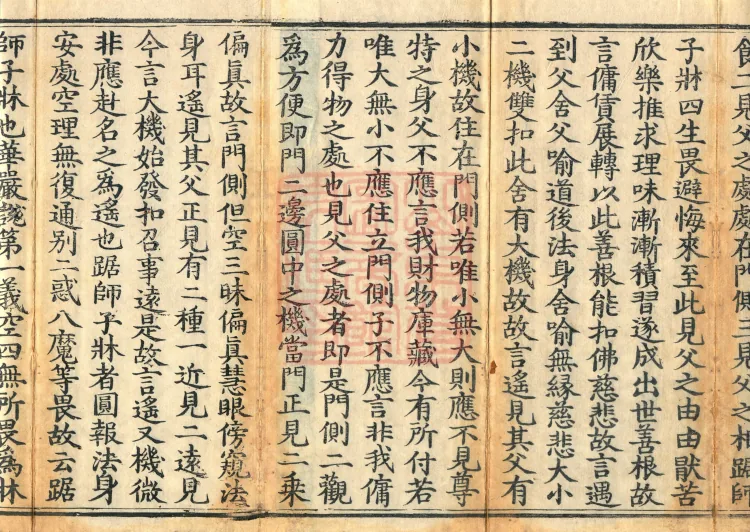 食二見父之處處在門側三見父之相踞師
子牀四生畏避悔來至此見父之由由猒苦
欣樂推求理味漸漸積習遂成出世善根故
言傭賃展轉以此善根能扣佛慈悲故言遇
到父舍父喻道後法身舍喻無緣慈悲大小
二機雙扣此舍有大機故故言遙見其父有
小機故住在門側若唯小無大則應不見尊
特之身父不應言我財物庫藏今有所付若
唯大無小不應住立門側子不應言非我傭
力得物之處也見父之處者即是門側二觀
爲方便即門二邊圓中之機當門正見二乘
偏眞故言門側但空三昧偏眞慧眼傍窺法
身耳遙見其父正見有二種一近見二遠見
今言大機始發扣召事遠是故言遙又機微
非應赴名之爲遙也踞師子牀者圓報法身
安處空理無復通别二惑八魔等畏故云踞
師子牀也華嚴䟽第一義空四無所畏爲牀